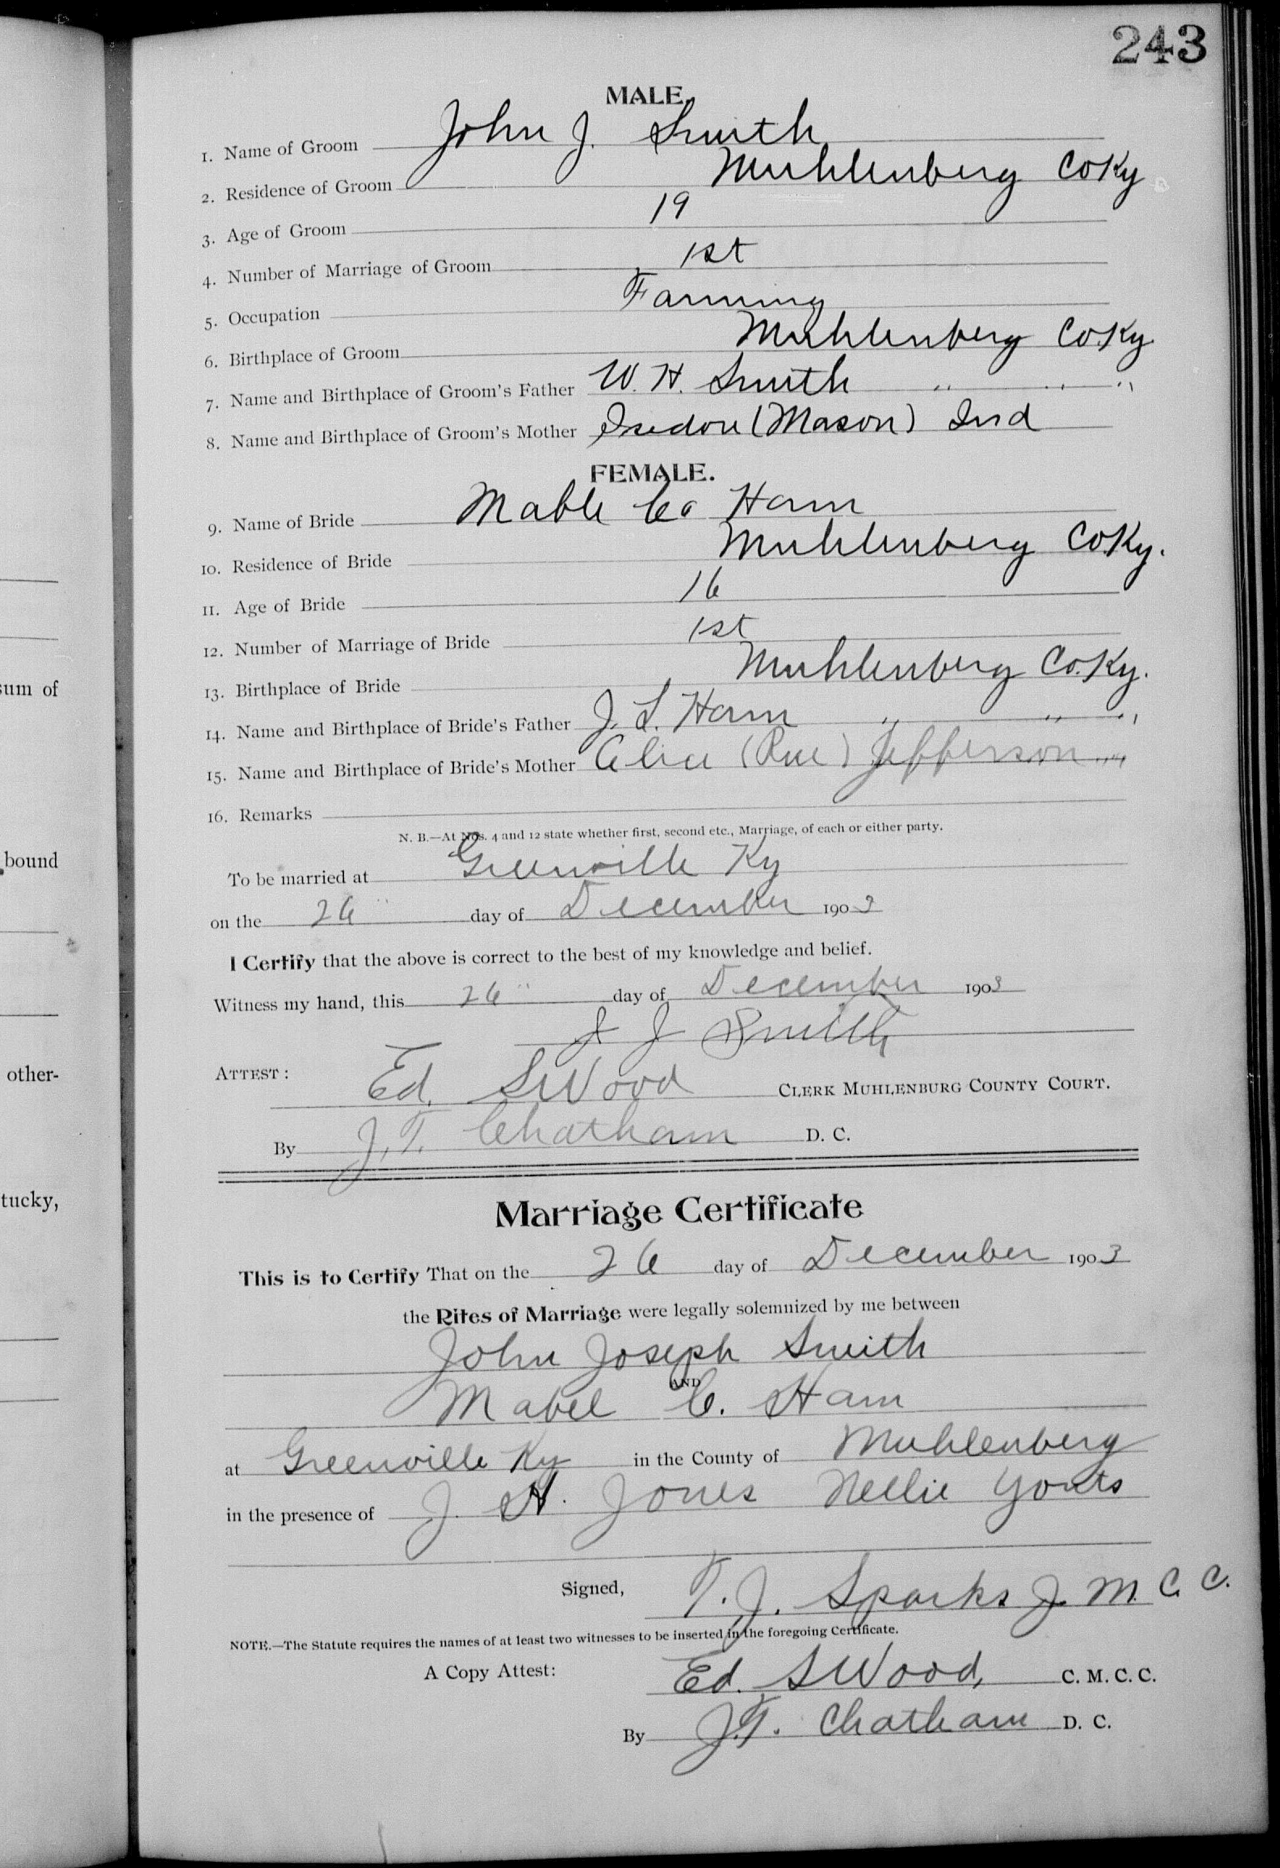 243
MALE.
1. Name of Groom John J. Smith
2. Residence of Groom Muhlenberg Co Ky
3. Age of Groom 19
4. Number of Marriage of Groom 1st
5. Occupation Farming
6. Birthplace of Groom Muhlenberg Co. Ky.
7. Name and Birthplace of Groom's Father W. H. Smith " " "
8. Name and Birthplace of Groom's Mother (Mason) Ind
FEMALE.
9. Name of Bride Mable C. Ham
10. Residence of Bride Muhlenberg Co. Ky.
11. Age of Bride 16
12. Number of Marriage of Bride 1st
13. Birthplace of Bride Muhlenberg Co. Ky.
14. Name and Birthplace of Bride's Father J. L. Ham " " "
15. Name and Birthplace of Bride's Mother Alice (Rue) Jefferson " "
16. Remarks
N. B.—At Nos. 4 and 12 state whether first, second etc., Marriage, of each or either party.
sum of
To be married at Greenville Ky
bound
on the 26" day of December 1903
I Certify that the above is correct to the best of my knowledge and belief.
Witness my hand, this 26" day of December 1903
J J Smith
other-
ATTEST: Ed. S Wood CLERK MUHLENBURG COUNTY COURT.
By J. T. Chatham D. C.
tucky,
Marriage Certificate
This is to Certify That on the 26 day of December 1903
the Rites of Marriage were legally solemnized by me between
John Joseph Smith
AND
Mabel C. Ham
at Greenville Ky in the County of Muhlenberg
in the presence of J. H. Jones Nellie Yonts
Signed, T. J. Sparks J. M. C. C.
NOTE.—The Statute requires the names of at least two witnesses to be inserted in the foregoing Certificate.
A Copy Attest: Ed. S Wood, C. M. C. C.
By J. T. Chatham D. C.